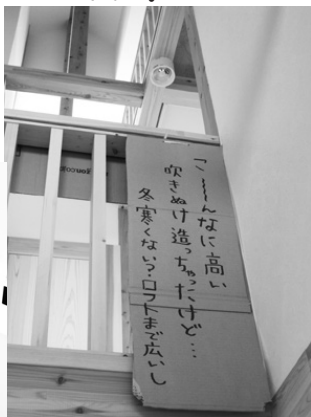 こ~~~んなに高い
吹きぬけ造っちゃったけど…
冬寒くない?ロフトまで広いし